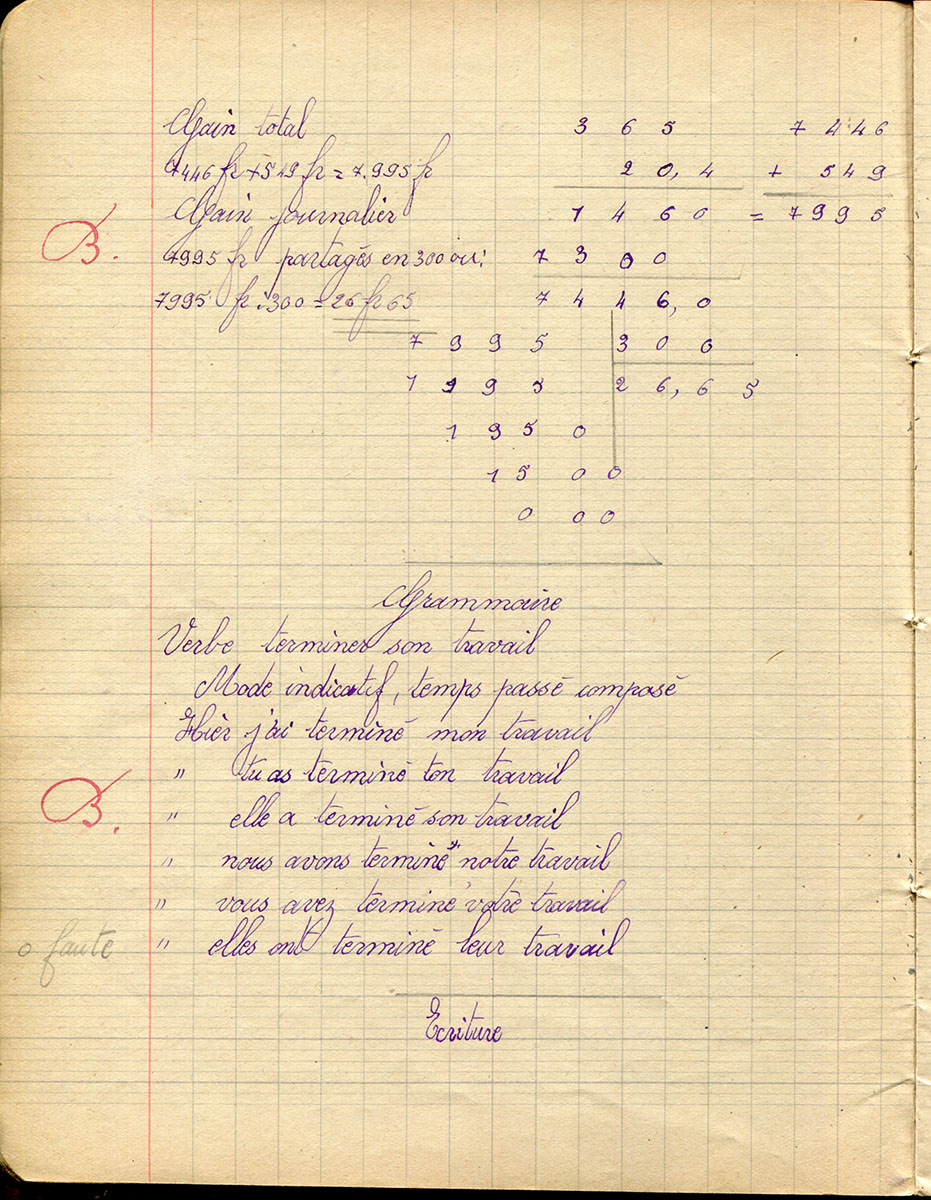 Gain total
7446 fr + 549 fr = 7.995 fr
Gain journalier
7995 fr partagés en 300 ou:
7995 fr : 300 = 26 fr 65
3 6 5
2 0, 4
1 4 6 0
7 3 0 0
7 4 4 6, 0
7 4 4 6
+ 5 4 9
= 7 9 9 5
7 9 9 5 3 0 0
1 9 9 5 2 6, 6 5
1 9 5 0
1 5 0 0
0 0 0
B.
Grammaire
Verbe terminer son travail
Mode indicatif, temps passé composé
Hier j'ai terminé mon travail
" tu as terminé ton travail
" elle a terminé son travail
" nous avons terminé notre travail
" vous avez terminé votre travail
" elles ont terminé leur travail
B.
0 faute
Ecriture